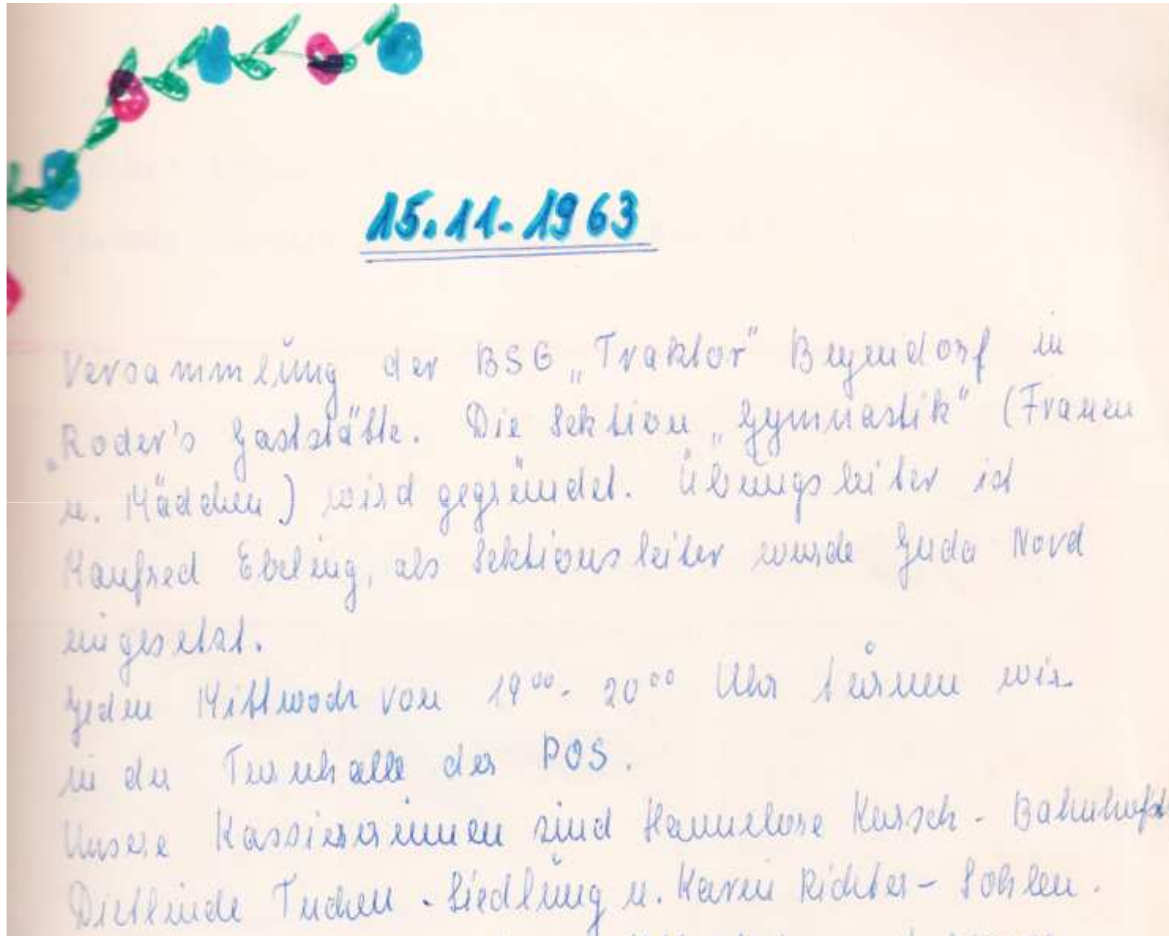 15.11.1963
Versammlung der BSG „Traktor" Beyendorf in
„Roder's Gaststätte. Die Sektion „Gymnastik" (Frauen
u. Mädchen) wird gegründet. Übungsleiter ist
Manfred Ebeling, als Sektionsleiter wurde Juda Nord
eingesetzt.
Jeden Mittwoch von 19⁰⁰- 20⁰⁰ Uhr turnen wir
in der Turnhalle der POS.
Unsere Kassiererinnen sind Hannelore Karsch - Bahnhofst
Dietlinde Tuchen - Siedlung u. Karin Richter - Sohlen.